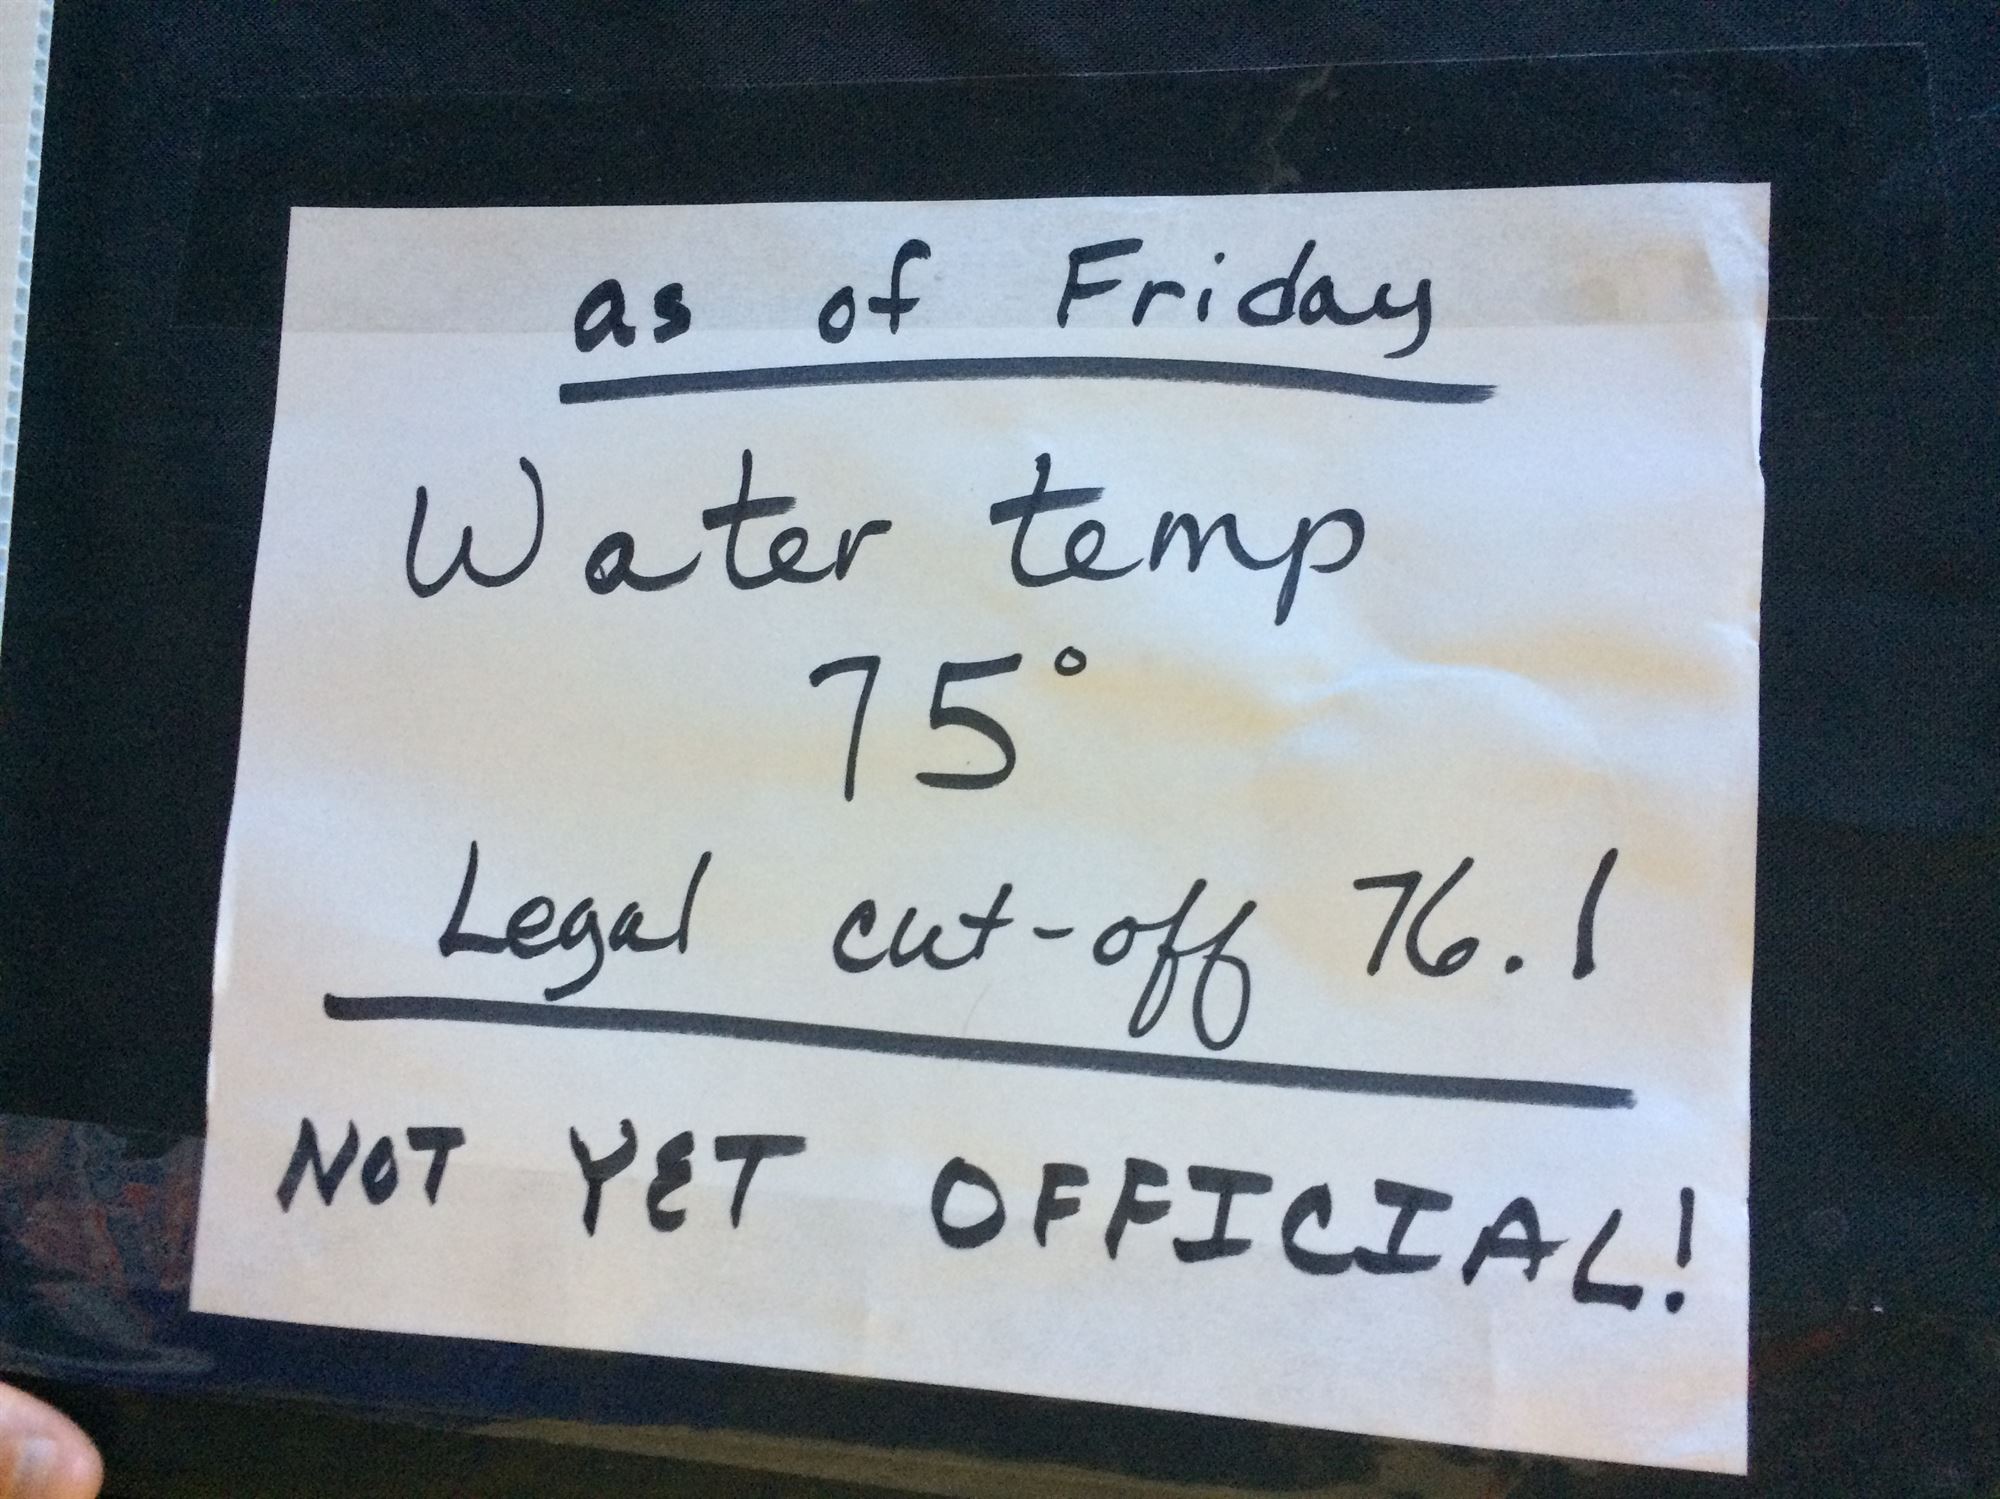 as of Friday
Water temp
75°
Legal cut-off 76.1
NOT YET OFFICIAL!